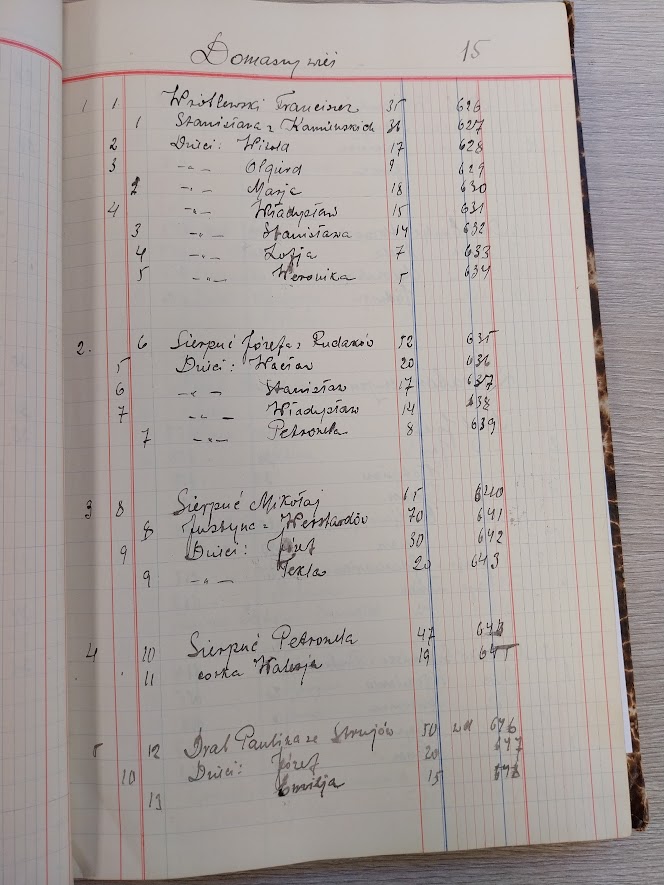 Domaszy wieś 15
1 1 Wróblewski Franciszek 35 626
1 Stanisława z Kamieńskich 36 627
2 Dzieci: Witold 17 628
3 -"- Olgierd 9 629
2 -"- Marja 18 630
4 -"- Władysław 15 631
3 -"- Stanisława 14 632
4 -"- Zofja 7 633
5 -"- Weronika 5 634
2. 6 Sierpuć Józefa z Rudaków 52 635
5 Dzieci: Wacław 20 636
6 -"- Stanisław 17 637
7 -"- Władysław 14 638
7 -"- Petronela 8 639
3 8 Sierpuć Mikołaj 640
8 Justyna z 70 641
9 Dzieci: Józef 30 642
9 -"- Tekla 20 643
4 10 Sierpuć Petronela 47 644
11 córka Walerja 19 645
5 12 Dral Paulina ze Strujów 50 wd 646
10 Dzieci: Józef 20 647
13 Emilja 15 648